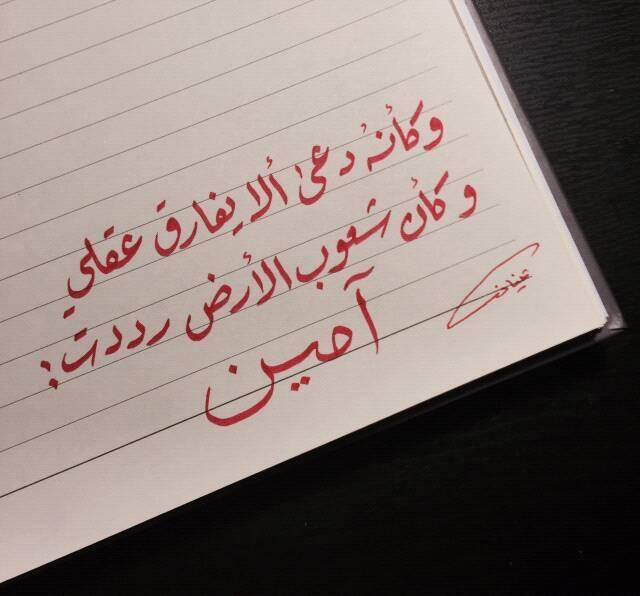 وكأنهُ دعىٰ ألا يفارق عقلي
وكأن شعوب الأرض رددت:
آمين
عيناك